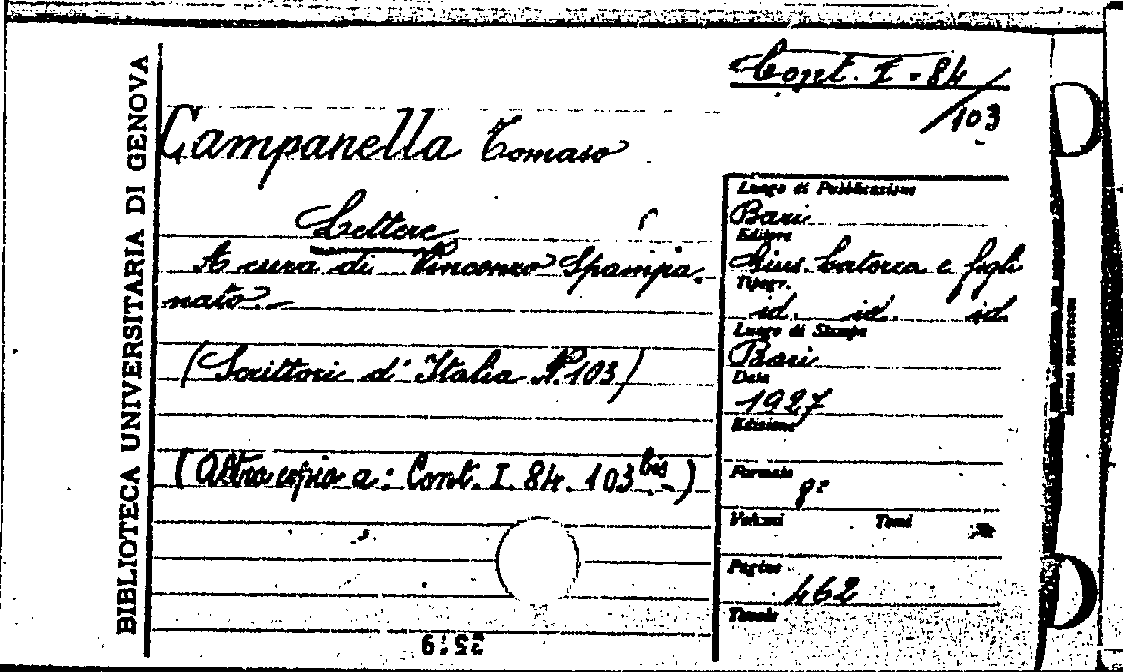 BIBLIOTECA UNIVERSITARIA DI GENOVA
Cont. I - 84/103
Campanella Tomaso
Lettere
A cura di Vincenzo Spampa-
nato.-
(Scrittori d'Italia N.103)
(Altra copia a: Cont. I. 84. 103 bis.-)
Luogo di Pubblicazione
Bari
Editore
Gius. Laterza e figli
Tipogr.
id. id. id.
Luogo di Stampa
Bari
Data
1927
Edizione
Formato
8°
Volumi Tomi
Pagine
462
Tavole